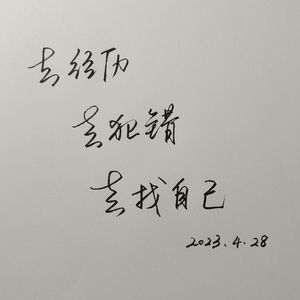 去经历
去犯错
去找自己
2023.4.28